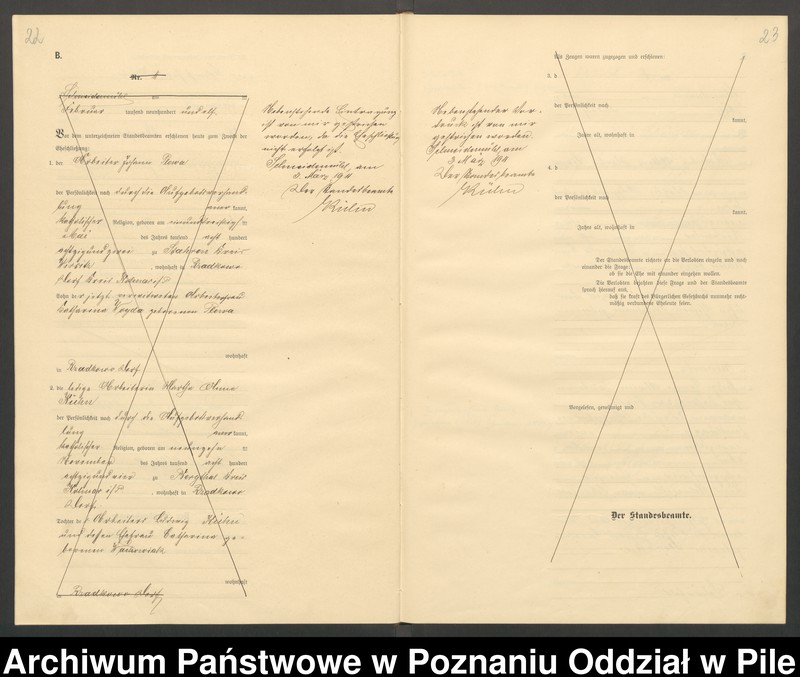 22
B.
Nr. 4
Schneidemühl am
Februar tausend neunhundert und elf.
Vor dem unterzeichneten Standesbeamten erschienen heute zum Zwecke der
Eheschließung:
1. der Arbeiter Johann
der Persönlichkeit nach durch die Aufgebotsverhand-
lung anerkannt,
katholischer Religion, geboren am neunundzwanzigsten
Mai des Jahres tausend acht hundert
achtzigundzwei zu Kreis
Wirsitz, wohnhaft in
Dorf Kreis Kolmar i/P
Sohn der jetzt verwitweten Arbeiterfrau
Catharina geborenen
wohnhaft
in Dorf
2. die ledige Arbeiterin Martha Anna
der Persönlichkeit nach durch die Aufgebotsverhand-
lung anerkannt,
katholischer Religion, geboren am neunzehnten
November des Jahres tausend acht hundert
achtzigundvier zu Kreis
Kolmar i/P, wohnhaft in
Dorf
Tochter des Arbeiters Ludwig
und dessen Ehefrau Catharina ge-
borenen
wohnhaft
in Dorf
Nebenstehende Eintragung
ist von mir gestrichen
worden, da die Eheschließung
nicht erfolgt ist.
Schneidemühl, am
3. März 1911
Der Standesbeamte
Nebenstehender Vor-
druck ist von mir
gestrichen worden
Schneidemühl, am
3. März 1911
Der Standesbeamte
23
Als Zeugen waren zugezogen und erschienen:
3. d
der Persönlichkeit nach
kannt,
Jahre alt, wohnhaft in
4. d
der Persönlichkeit nach
kannt,
Jahre alt, wohnhaft in
Der Standesbeamte richtete an die Verlobten einzeln und nach
einander die Frage:
ob sie die Ehe mit einander eingehen wollen.
Die Verlobten bejahten diese Frage und der Standesbeamte
sprach hierauf aus,
daß sie kraft des Bürgerlichen Gesetzbuchs nunmehr recht-
mäßig verbundene Eheleute seien.
Vorgelesen, genehmigt und
Der Standesbeamte.
Archiwum Państwowe w Poznaniu Oddział w Pile